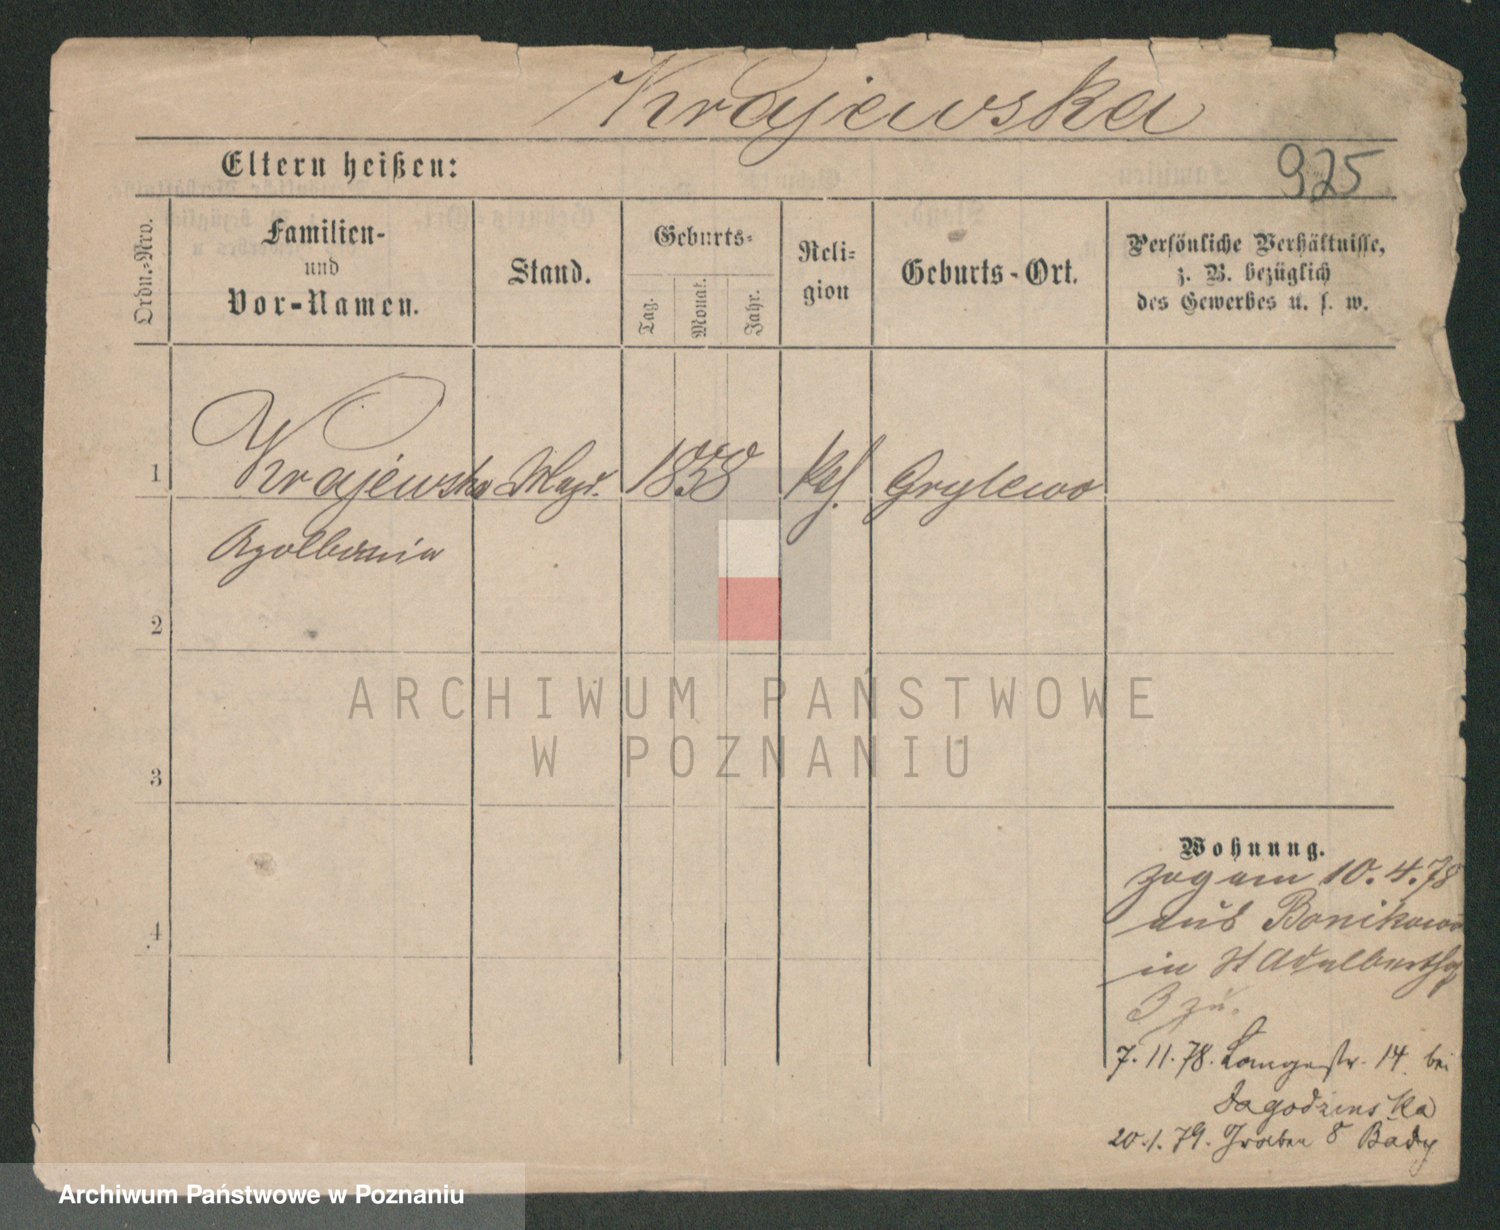 Krajewska
925
Eltern heißen:
Ordn.-Nro.
Familien-
und
Vor-Namen.
Stand.
Geburts-
Tag.
Monat.
Jahr.
Reli-
gion
Geburts-Ort.
Persönliche Verhältnisse,
z. B. bezüglich
des Gewerbes u. s. w.
1
Krajewska
1858
kth.
Grylewo
2
3
4
ARCHIWUM PAŃSTWOWE
W POZNANIU
Wohnung.
zog am 10.4.78
aus Bonikowo
in St Adalbertstr
3 zu.
7.11.78. Langestr. 14 bei
Jagodzinska
20.1.79. Graben 8
Archiwum Państwowe w Poznaniu